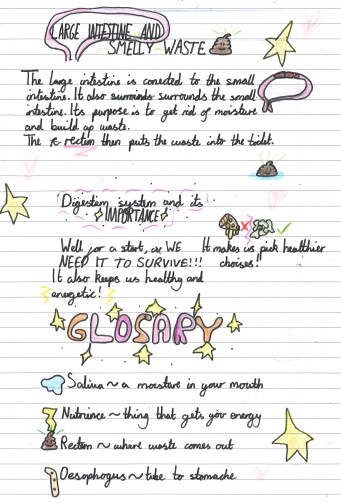 LARGE INTESTINE AND
SMELLY WASTE
The large intestine is conected to the small
intestine. It also surroinds surrounds the small
intestine. Its purpose is to get rid of moisture
and build up waste.
The re rectum then puts the waste into the toilet.
Digestion system and its
IMPORTANCE
Well for a start, WE
NEED IT TO SURVIVE!!!
It also keeps us healthy and
energetic!
It makes us pick healthier
choises!
GLOSARY
Saliva ~ a moisture in your mouth
Nutrience ~ thing that gets your energy
Rectum ~ where waste comes out
Oesophogus ~ tube to stomache